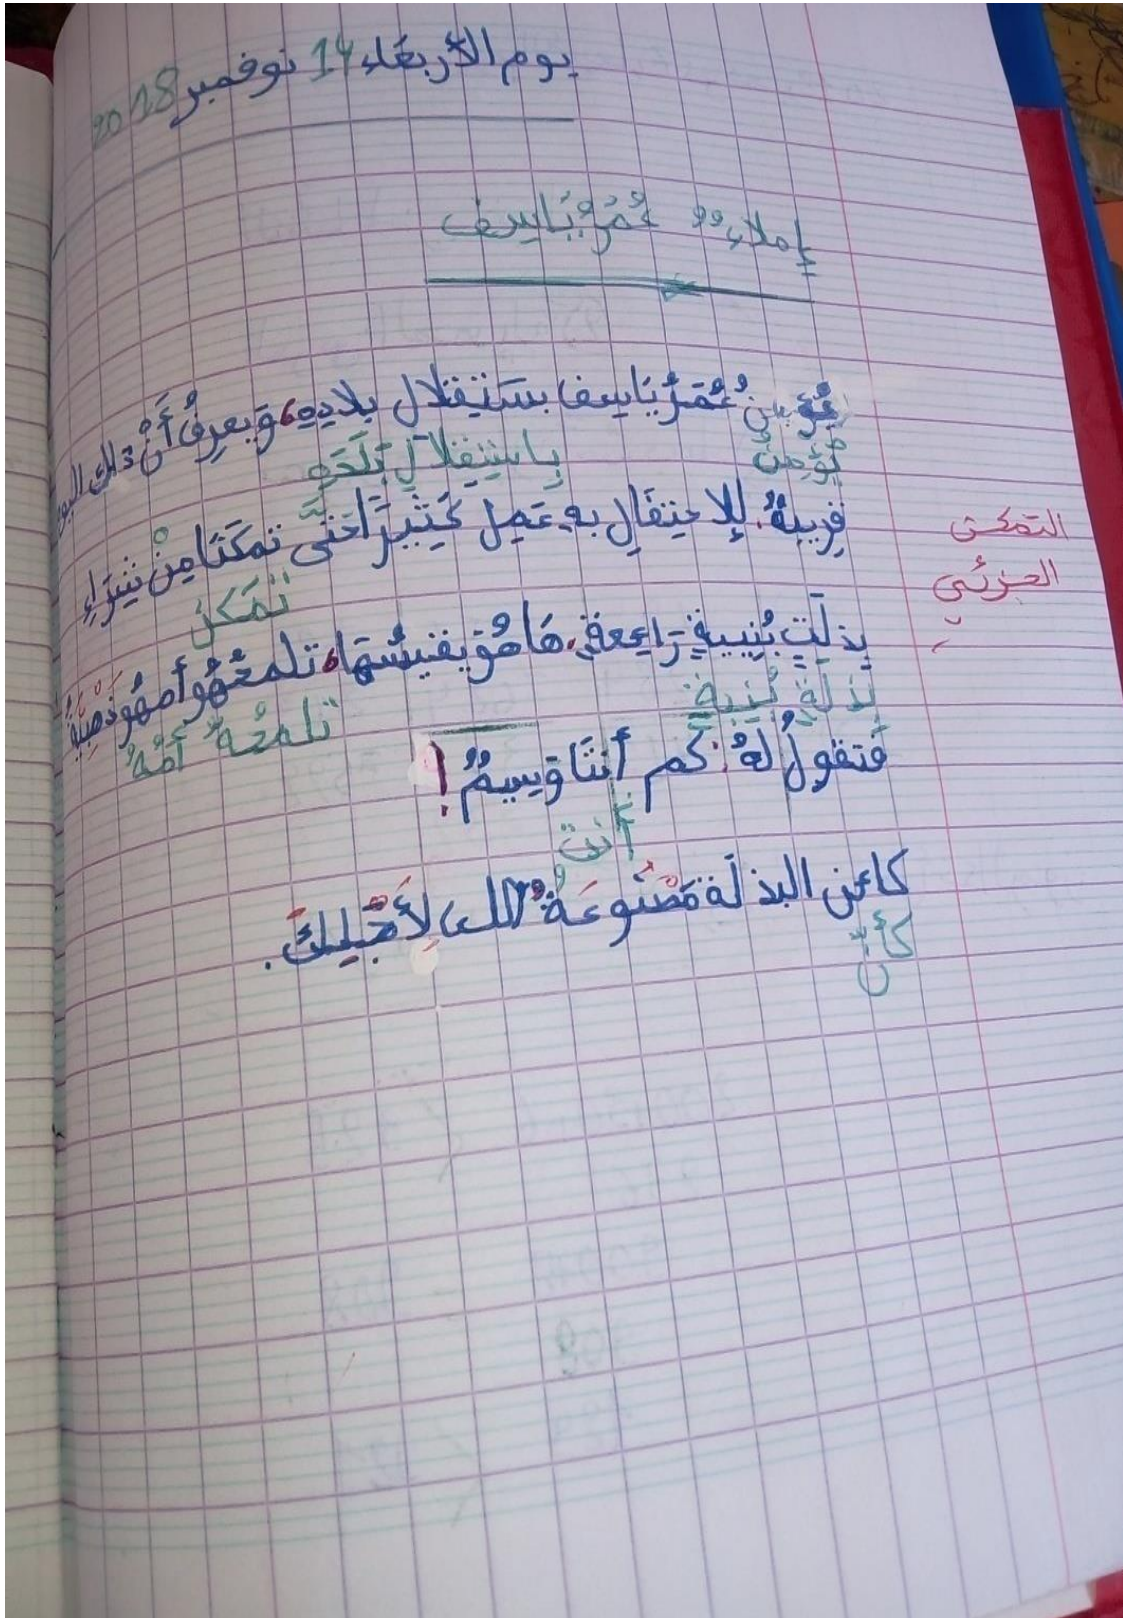 يوم الأربعاء 14 نوفمبر 2018
إملاء: عُمَرُ بَايسف
يُؤمِنُ عُمَرُ بَايسف بستِقلال بلادِهِ، وَيعرِفُ أَنْ ذالك اليوم
يُؤمِنُ بِاسْتِقْلَالِ بَلَدِهِ
قرِيبٌ. للإحتِفَالِ بهِ عَمِل كَثِيرًا حَتَّى تمكَنَا مِنْ شِرَاءِ
التمكن
تمَكنَ
الجزئي
بِذلَتٍ بُنِيبيةٍ رَاءِعةٍ. هَا هُوَ يقِيسُهَا، تلمحُهُو أمهُو ذهبِيَّةُ
بَذلَةٍ بُنِيَةٍ تلمحُهُ أمُّهُ
فتقولُ لهُ: كم أنتَا وَسِيمٌ!
أنت
كاءن البذلَة مَصْنُوعَةٌ لأَجْلِكَ.
كأنَّ